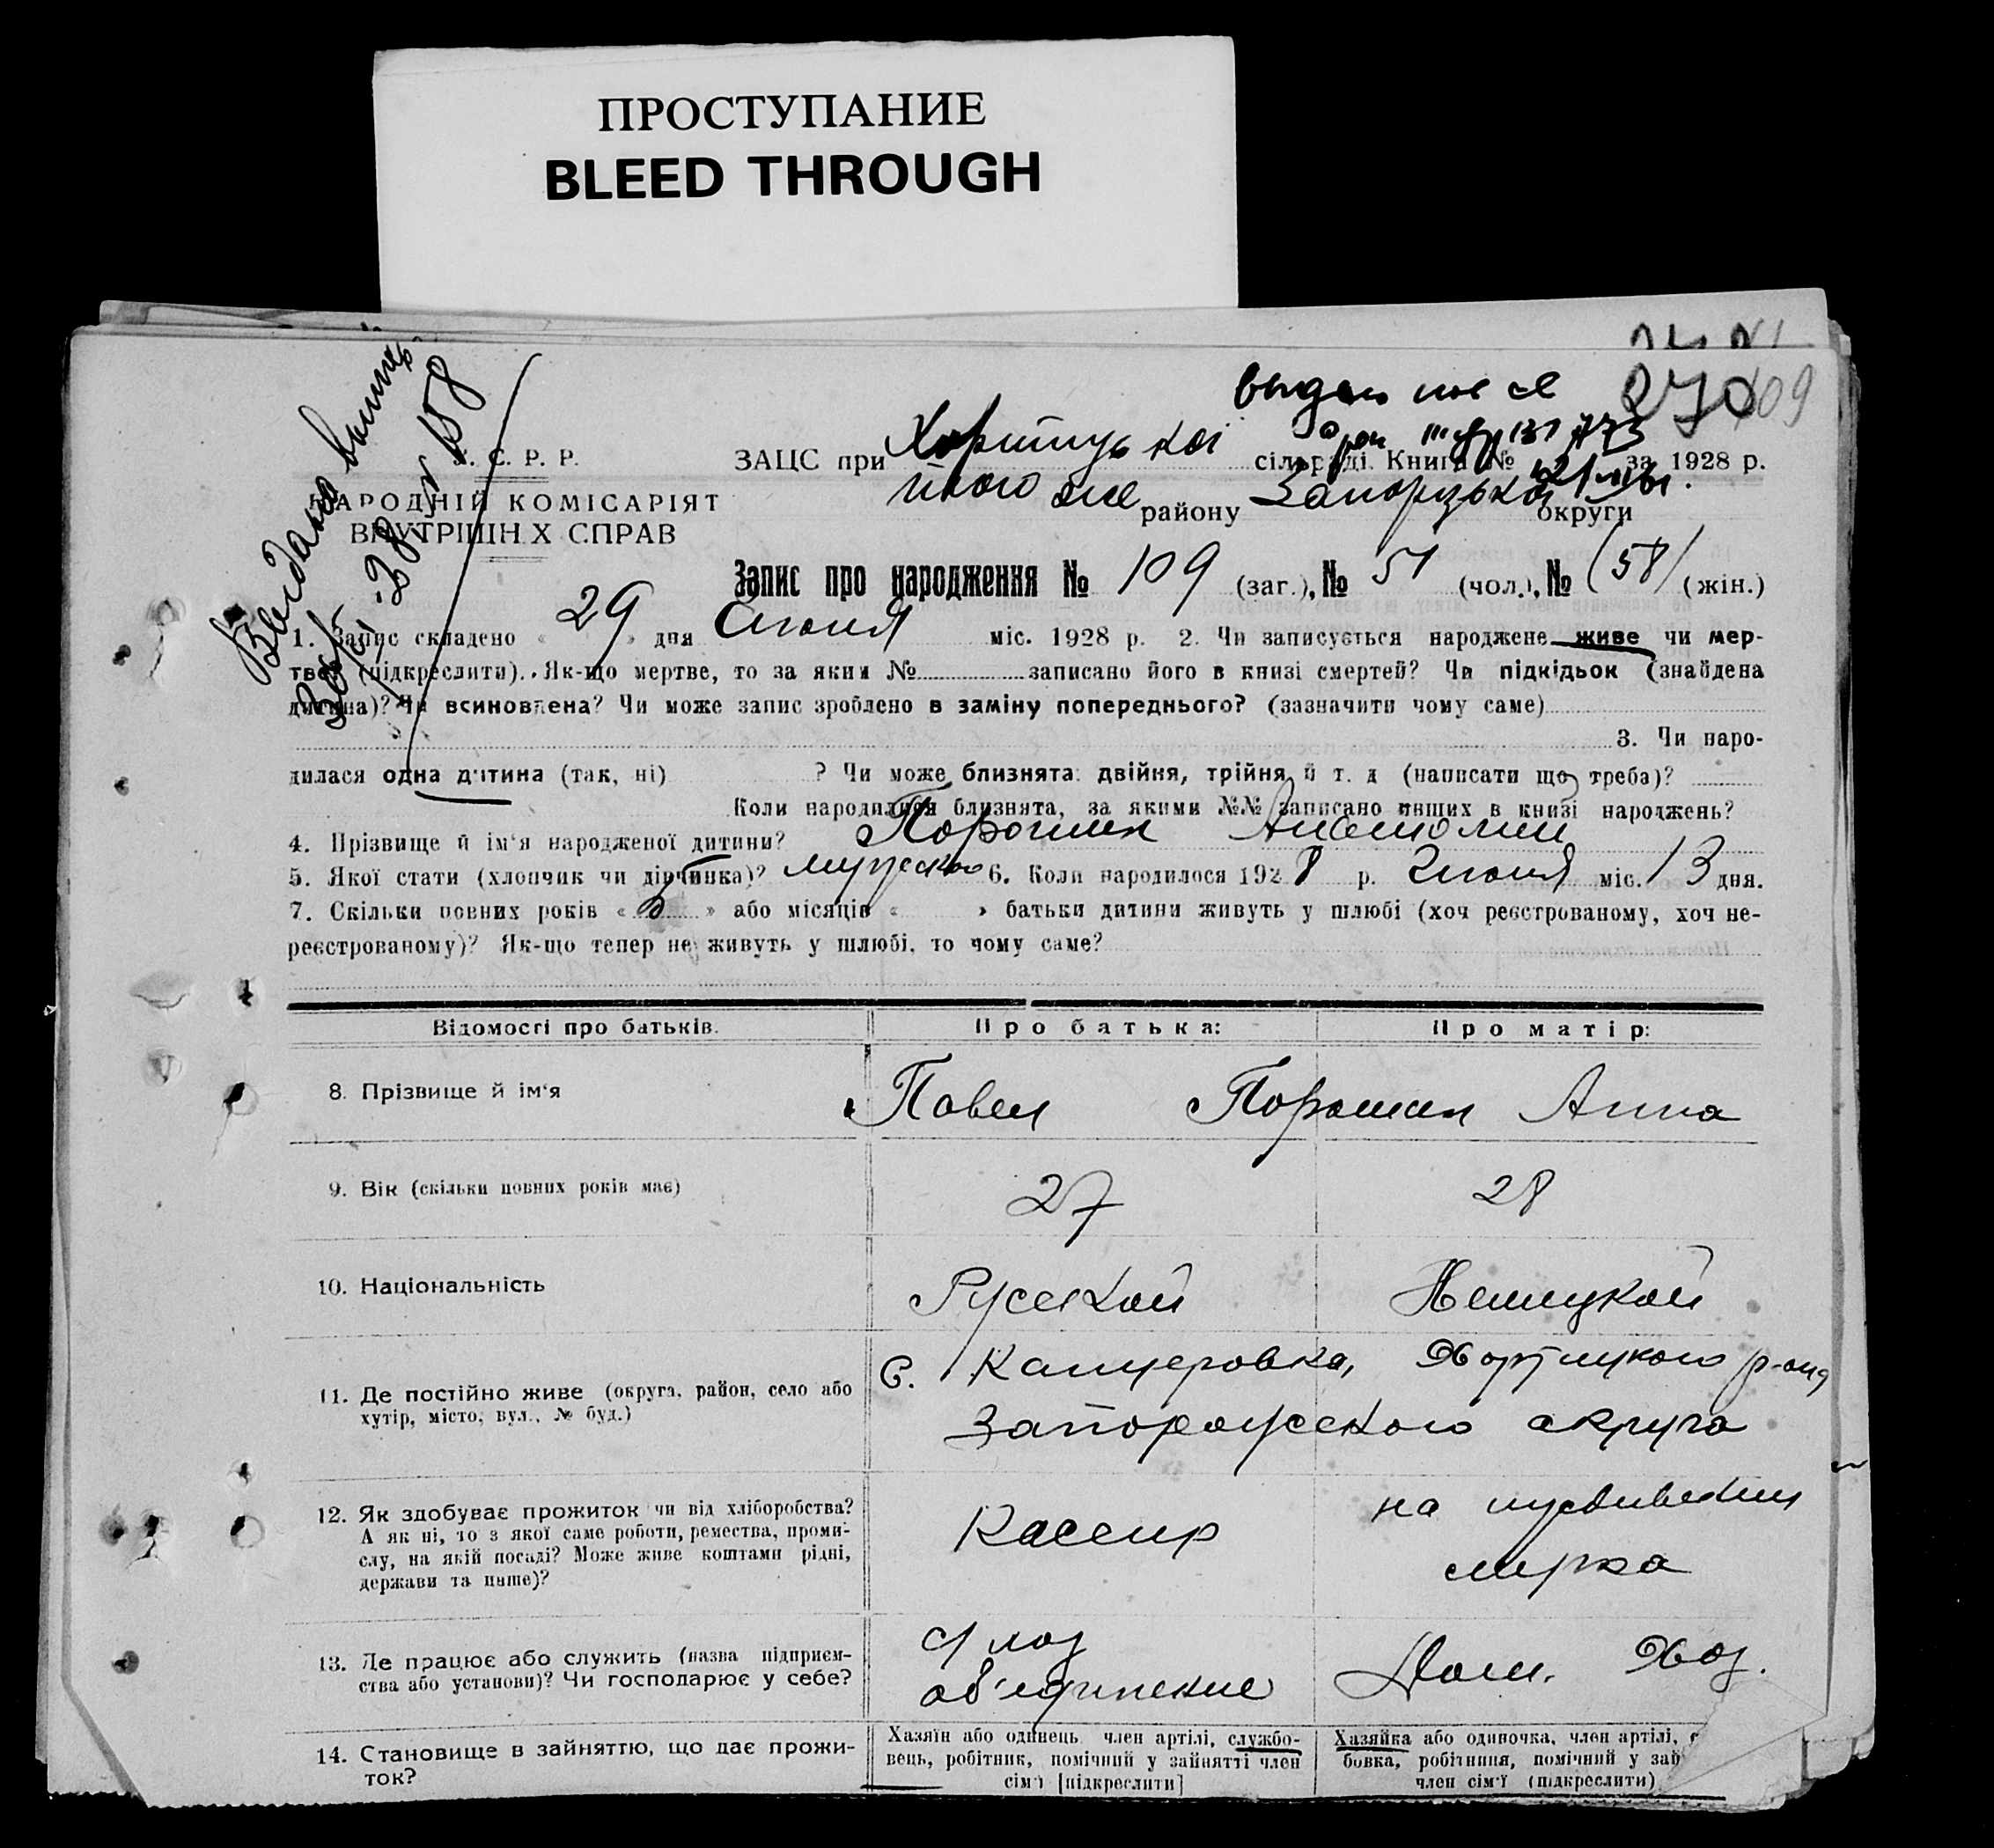 ПРОСТУПАНИЕ
BLEED THROUGH
270
109
У. С. Р. Р.
НАРОДНІЙ КОМІСАРІЯТ
ВНУТРІШН Х СПРАВ
ЗАЦС при Хортицькой сільраді. Книга № за 1928 р.
району Запорізької округи
Запис про народження № 109 (заг.), № 51 (чол.), № (58) (жін.)
1. Запис складено « 29 » дня Июня міс. 1928 р. 2. Чи записується народжене живе чи мер-
тве (підкреслити). Як-що мертве, то за яким № записано його в книзі смертей? Чи підкідьок (знайдена
дитина)? Чи всиновлена? Чи може запис зроблено в заміну попереднього? (зазначити чому саме)
3. Чи наро-
дилася одна дитина (так, ні) ? Чи може близнята: двійня, трійня й т. д (написати що треба)?
Коли народилися близнята, за якими №№ записано инших в книзі народжень?
4. Прізвище й ім'я народженої дитини? Порошин Анатолий
5. Якої стати (хлопчик чи дівчинка)? мужской 6. Коли народилося 1928 р. Июня міс. 13 дня.
7. Скільки повних років « » або місяців « » батьки дитини живуть у шлюбі (хоч реєстрованому, хоч не-
реєстрованому)? Як-що тепер не живуть у шлюбі, то чому саме?
Відомості про батьків. Про батька: Про матір:
8. Прізвище й ім'я Павел Порошин Анна
9. Вік (скільки повних років має) 27 28
10. Національність Русской Немецкой
11. Де постійно живе (округа, район, село або
хутір, місто, вул., № буд.)
С. Канцеровка, Хортицкого р-она
Запорожского округа
12. Як здобуває прожиток чи від хліборобства?
А як ні, то з якої саме роботи, ремества, проми-
слу, на якій посаді? Може живе коштами рідні,
держави та инше)?
Кассир
на иждивении
мужа
13. Де працює або служить (назва підприєм-
ства або установи)? Чи господарює у себе?
об'единение
Дом. Хоз.
14. Становище в зайняттю, що дає прожи-
ток?
Хазяїн або одинець член артілі, службо-
вець, робітник, помічний у зайнятті член
сім'ї [підкреслити]
Хазяйка або одиночка, член артілі, с
бовка, робітниця, помічний у зай
член сім'ї (підкреслити)